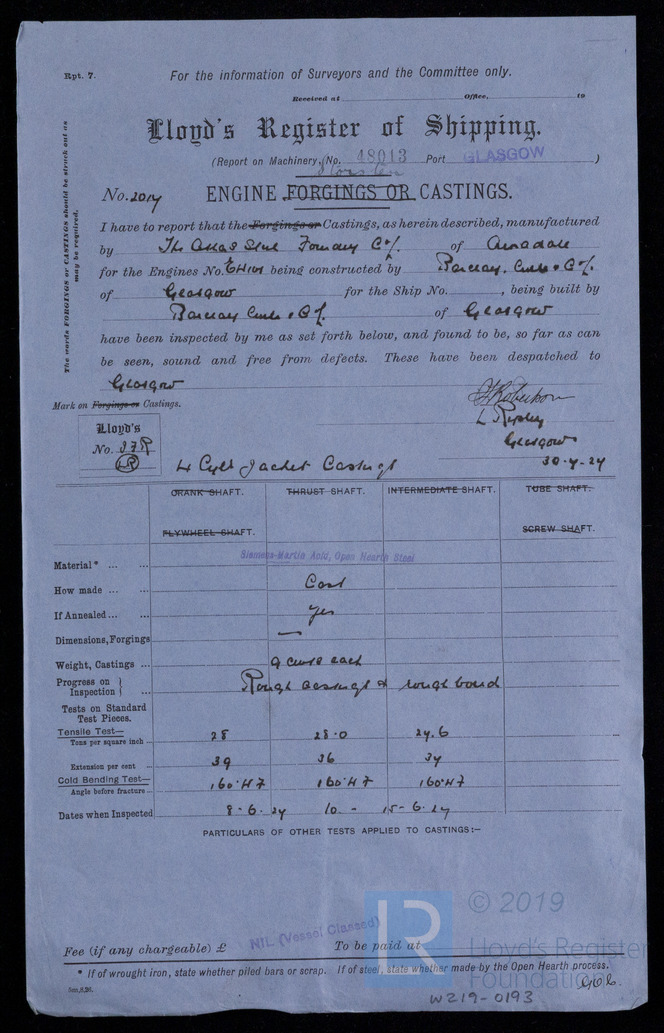 Rpt. 7.
For the information of Surveyors and the Committee only.
Received at Office, 19
Lloyd's Register of Shipping.
(Report on Machinery, No. 48013 Port GLASGOW )
No. 2014 ENGINE FORGINGS OR CASTINGS.
The words FORGINGS or CASTINGS should be struck out as
may be required.
I have to report that the Forgings or Castings, as herein described, manufactured
by The Atlas Steel Foundry Co/. of Armadale
for the Engines No. being constructed by Barclay, Curle & Co/.
of Glasgow for the Ship No. , being built by
Barclay Curle & Co/. of Glasgow
have been inspected by me as set forth below, and found to be, so far as can
be seen, sound and free from defects. These have been despatched to
Glasgow
Mark on Forgings or Castings.
Robertson
Glasgow
Lloyd's
No. 37R
LR
4 Cylr Jacket Castings
CRANK SHAFT. THRUST SHAFT. INTERMEDIATE SHAFT. TUBE SHAFT.
FLYWHEEL SHAFT. SCREW SHAFT.
Siemens-Martin Acid, Open Hearth Steel
Material* ... ...
How made ... ... Cast
If Annealed... ... Yes
Dimensions, Forgings —
Weight, Castings ... 9 cwts each
Progress on Inspection } ... Rough castings & rough bored
Tests on Standard
Test Pieces.
Tensile Test—
Tons per square inch ... 28 28.0 27.6
Extension per cent ... 39 36 34
Cold Bending Test—
Angle before fracture ... 160.H7 160.H7 160.H7
Dates when Inspected 8-6.27 10. - 15-6.27
PARTICULARS OF OTHER TESTS APPLIED TO CASTINGS:—
© 2019
LR
Lloyd's Register
Foundation
Fee (if any chargeable) £ NIL (Vessel Classed) To be paid at
* If of wrought iron, state whether piled bars or scrap. If of steel, state whether made by the Open Hearth process.
W219-0193